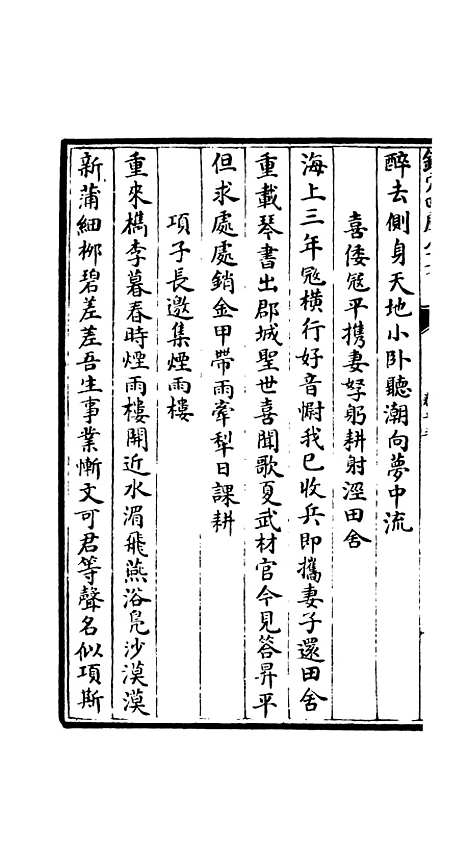 醉去側身天地小卧聽潮向夢中流
喜倭冦平携妻孥躬耕射涇田舍
海上三年冦横行好音慰我已收兵即攜妻子還田舍
重載琴書出郡城聖世喜聞歌夏武材官今見答昇平
但求處處銷金甲帶雨牽犁日課耕
項子長邀集煙雨樓
重來檇李暮春時煙雨樓開近水湄飛燕浴鳧沙漠漠
新蒲細栁碧差差吾生事業慚文可君等聲名似項斯